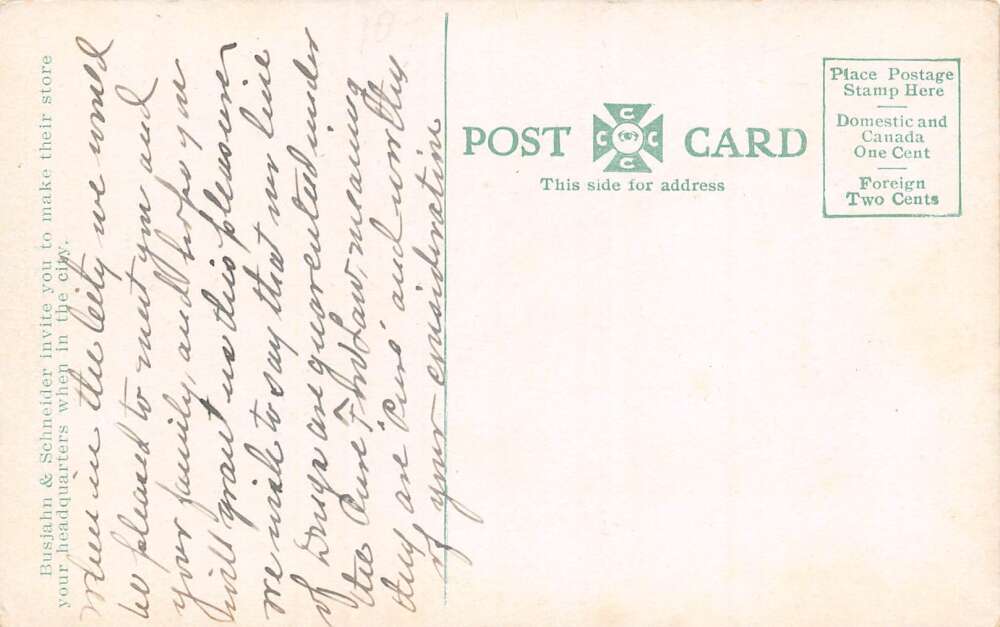 Busjahn & Schneider invite you to make their store
your headquarters when in the city.
When in the City we would
be pleased to meet you and
your family, and hope you
will grant us this pleasure
we wish to say that our line
of Drugs are guarented under
the Pure F Law, meaning
they are Pure and worthy
of your consideration
POST CARD
C C C C
This side for address
Place Postage
Stamp Here
Domestic and
Canada
One Cent
Foreign
Two Cents